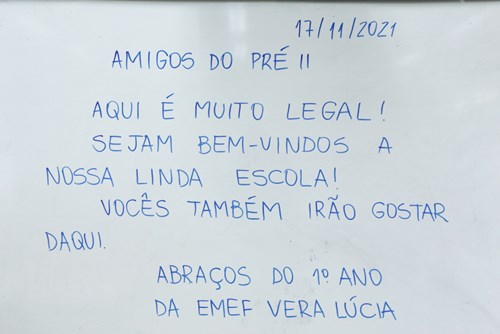 17/11/2021
AMIGOS DO PRÉ II
AQUI É MUITO LEGAL!
SEJAM BEM-VINDOS A
NOSSA LINDA ESCOLA!
VOCÊS TAMBÉM IRÃO GOSTAR
DAQUI.
ABRAÇOS DO 1º ANO
DA EMEF VERA LÚCIA